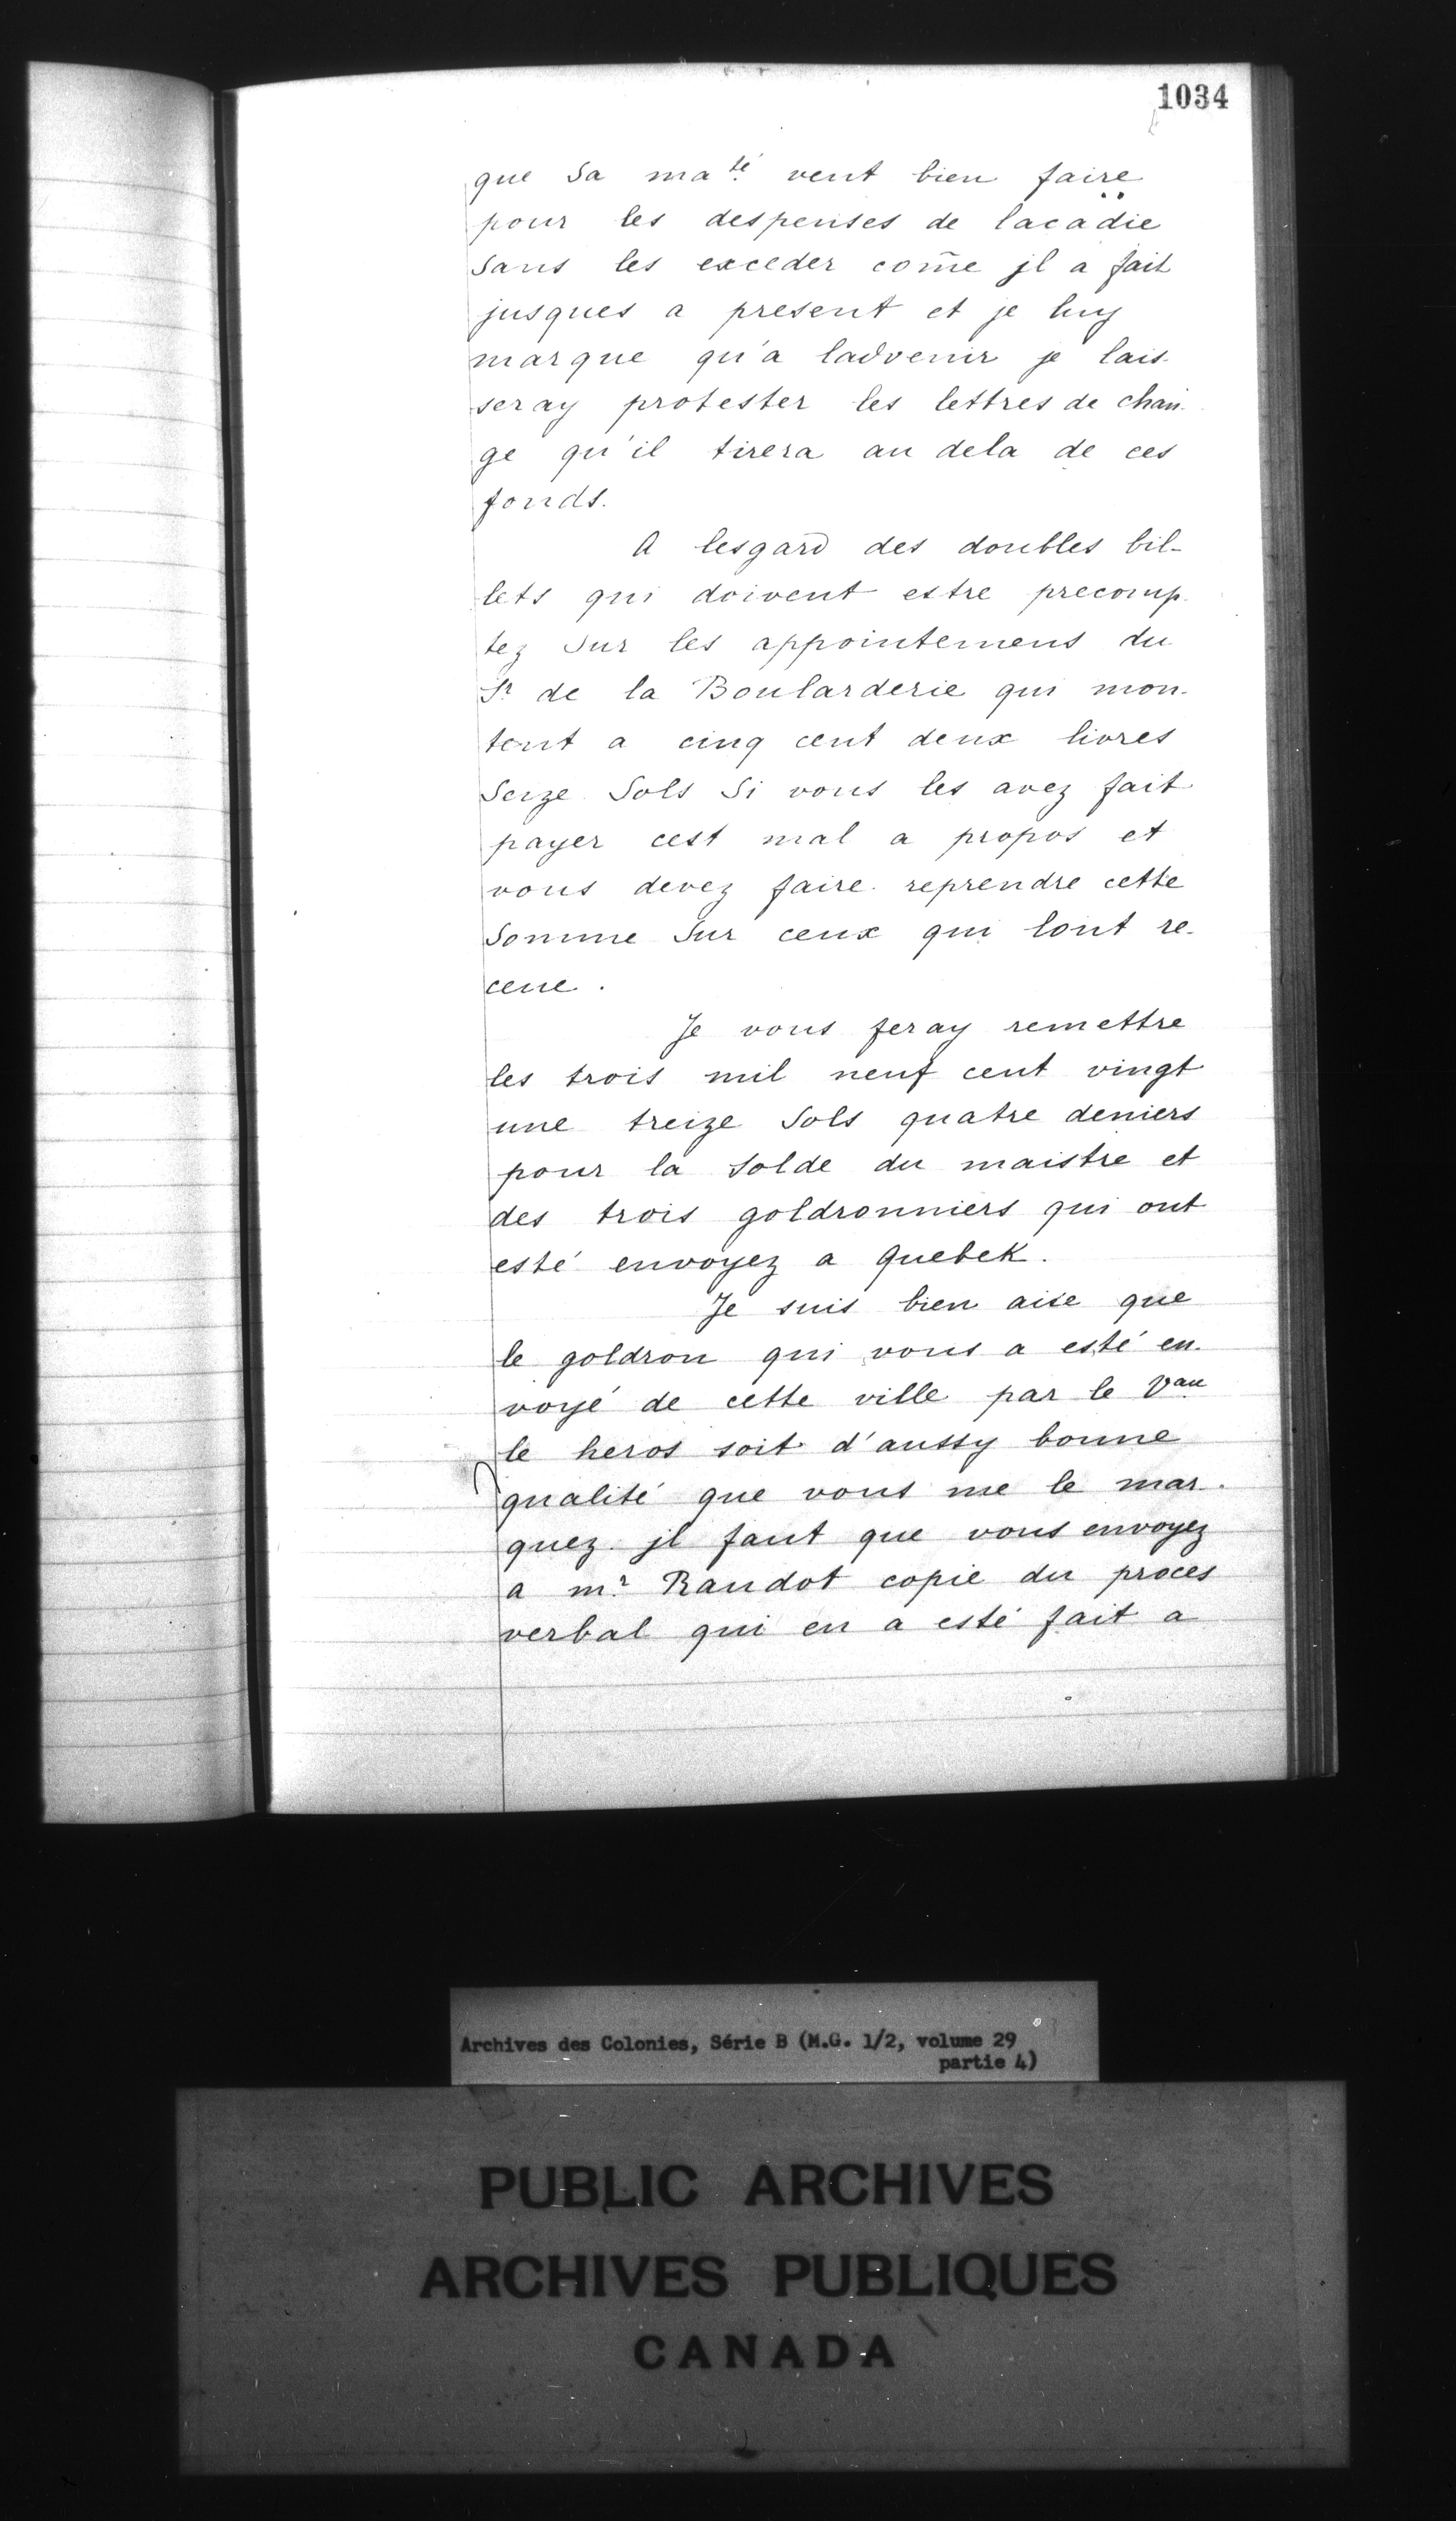 1034
que Sa ma.té veut bien faire
pour les despenses de lacadie
Sans les exceder com̃e jl a fait
jusques a present et je luy
marque qu'a ladvenir je lais-
seray protester les lettres de chan-
ge qu'il tirera au dela de ces
fonds.
A lesgard des doubles bil-
lets qui doivent estre precomp-
tez Sur les appointemens du
Sr de la Boularderie qui mon-
tent a cinq cent deux livres
Seize Sols Si vous les avez fait
payer cest mal a propos et
vous devez faire reprendre cette
Somme Sur ceux qui lont re-
ceue.
Je vous feray remettre
les trois mil neuf cent vingt
une treize Sols quatre deniers
pour la Solde du maistre et
des trois goldronniers qui ont
esté envoyez a Quebek.
Je suis bien aise que
le goldron qui vous a esté en-
voyé de cette ville par le Vau
le heros soit d'aussy bonne
qualité que vous me le mar-
quez jl faut que vous envoyez
a mr Raudot copie du proces
verbal qui en a esté fait a
Archives des Colonies, Série B (M.G. 1/2, volume 29
partie 4)
PUBLIC ARCHIVES
ARCHIVES PUBLIQUES
CANADA